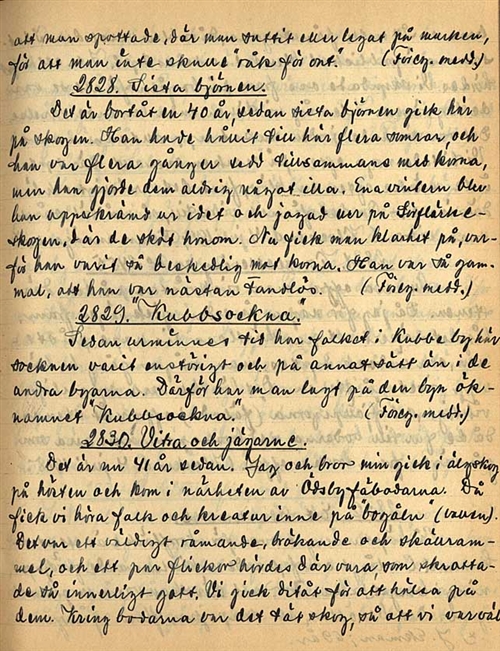 att man spottade, där man suttit eller legat på marken,
för att man inte skulle "råk för ont." (Föreg. medd.)
2828. Sista björnen.
Det är bortåt en 40 år, sedan sista björnen gick här
på skogen. Han hade hållit till här flera somrar, och
han var flera gånger sedd tillsammans med korna,
men han gjorde dem aldrig något illa. Ena vintern blev
han uppskrämd ur idet och jagad ner på
skogen, där de sköt honom. Nu fick man klarhet på, var-
för han varit så beskedlig mot korna. Han var så gam-
mal, att han var nästan tandlös. (Föreg. medd.)
2829. "Kubbsockna."
Sedan urminnes tid har folket i Kubbe by här
socknen varit enstörigt och på annat sätt än i de
andra byarna. Därför har man lagt på den byn ök-
namnet "Kubbsockna." (Föreg. medd.)
2830. Vitra och jägarne.
Det är nu 41 år sedan. Jag och bror min gick i älgskog
på hösten och kom i närheten av Odsbyfäbodarna. Då
fick vi höra folk och kreatur inne på bogåln (vallen).
Det var ett väldigt råmande, bräkande och skällram-
mel, och ett par flickor hördes där vara, som skratta-
de så innerligt gott. Vi gick ditåt för att hälsa på
dem. Kring bodarna var det tät skog, så att vi var väl